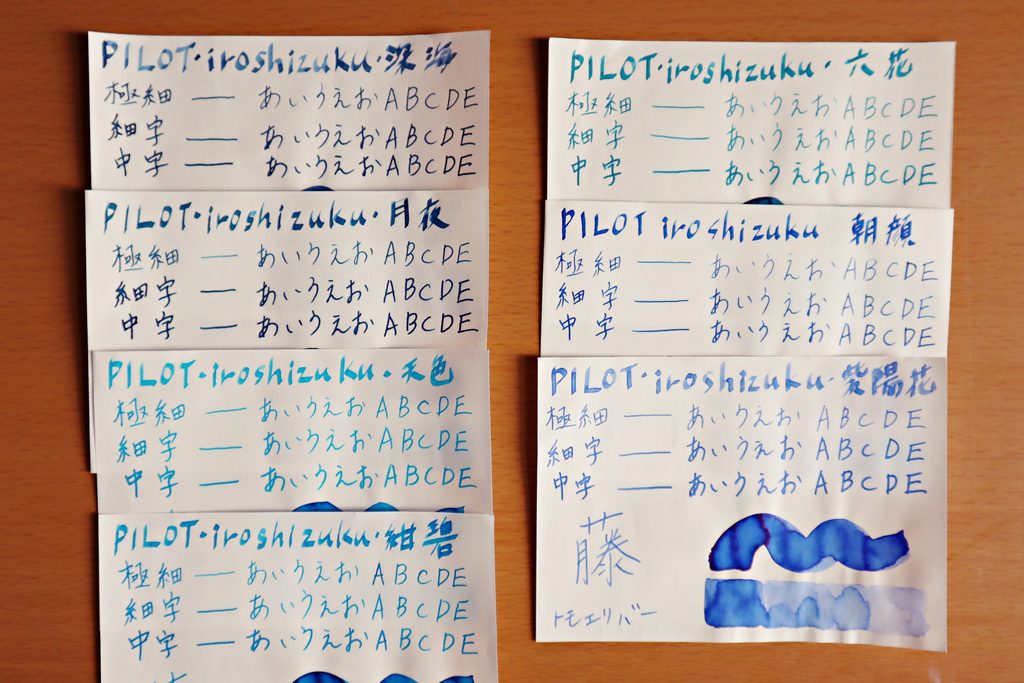 PILOT・iroshizuku・深海
極細 — あいうえお ABCDE
細字 — あいうえお ABCDE
中字 — あいうえお ABCDE
PILOT・iroshizuku・月夜
極細 — あいうえお ABCDE
細字 — あいうえお ABCDE
中字 — あいうえお ABCDE
PILOT・iroshizuku・天色
極細 — あいうえお ABCDE
細字 — あいうえお ABCDE
中字 — あいうえお ABCDE
PILOT・iroshizuku・紺碧
極細 — あいうえお ABCDE
細字 — あいうえお ABCDE
中字 — あいうえお ABCDE
PILOT・iroshizuku・六花
極細 — あいうえお ABCDE
細字 — あいうえお ABCDE
中字 — あいうえお ABCDE
PILOT iroshizuku 朝顔
極細 — あいうえお ABCDE
細字 — あいうえお ABCDE
中字 — あいうえお ABCDE
PILOT・iroshizuku・紫陽花
極細 — あいうえお ABCDE
細字 — あいうえお ABCDE
中字 — あいうえお ABCDE
藤
トモエリバー